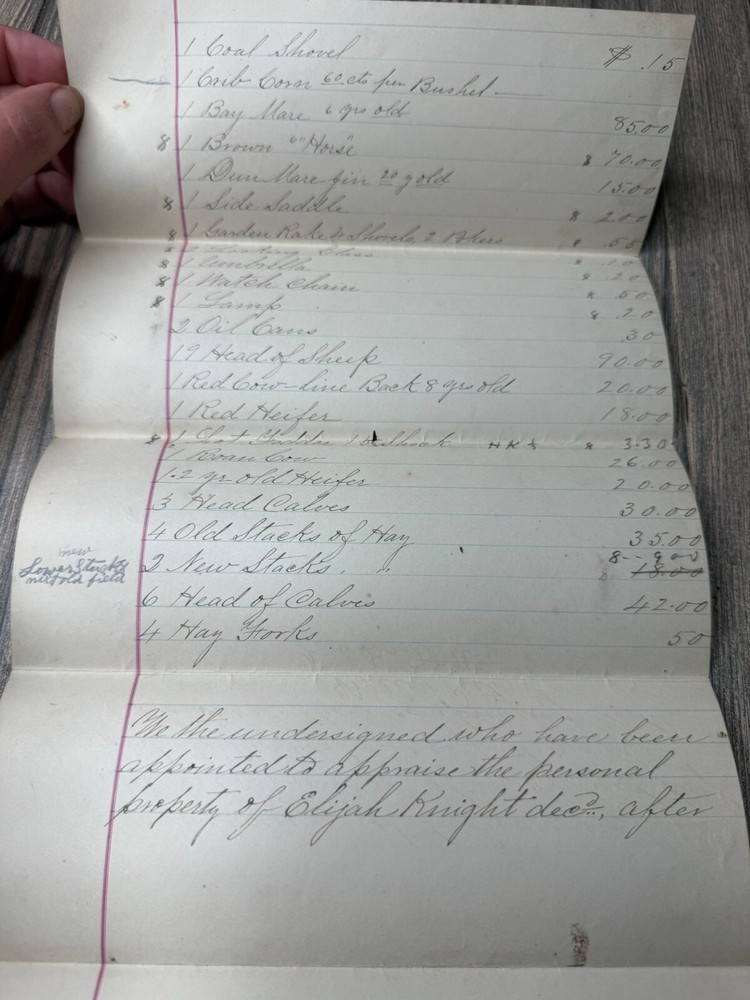 1 Coal Shovel $ .15
1 Crib Corn 60 cts per Bushel
1 Bay Mare 6 yrs old 85.00
8 1 Brown 6 " Horse" 8 70.00
1 Dun Mare 20 y old 15.00
8 1 Side Saddle 8 2.00
8 1 Garden Rake & Shovels, 2 8 .55
8 1 Umbrella 8 .20
8 1 Watch Chain 8 .50
8 1 Lamp 8 .20
2 Oil Cans 30
19 Head of Sheep 90.00
1 Red Cow-line Back 8 yrs old 20.00
1 Red Heifer 18.00
8 1 8 3.30
1 Roan Cow 26.00
1-2 yr old Heifer 20.00
3 Head Calves 30.00
4 Old Stacks of Hay 35.00
new
Lower Stacks
old field
2 New Stacks " 8-- 9 00
18.00
6 Head of Calves 42.00
4 Hay Forks 50
We the undersigned who have been
appointed to appraise the personal
property of Elijah Knight decd., after